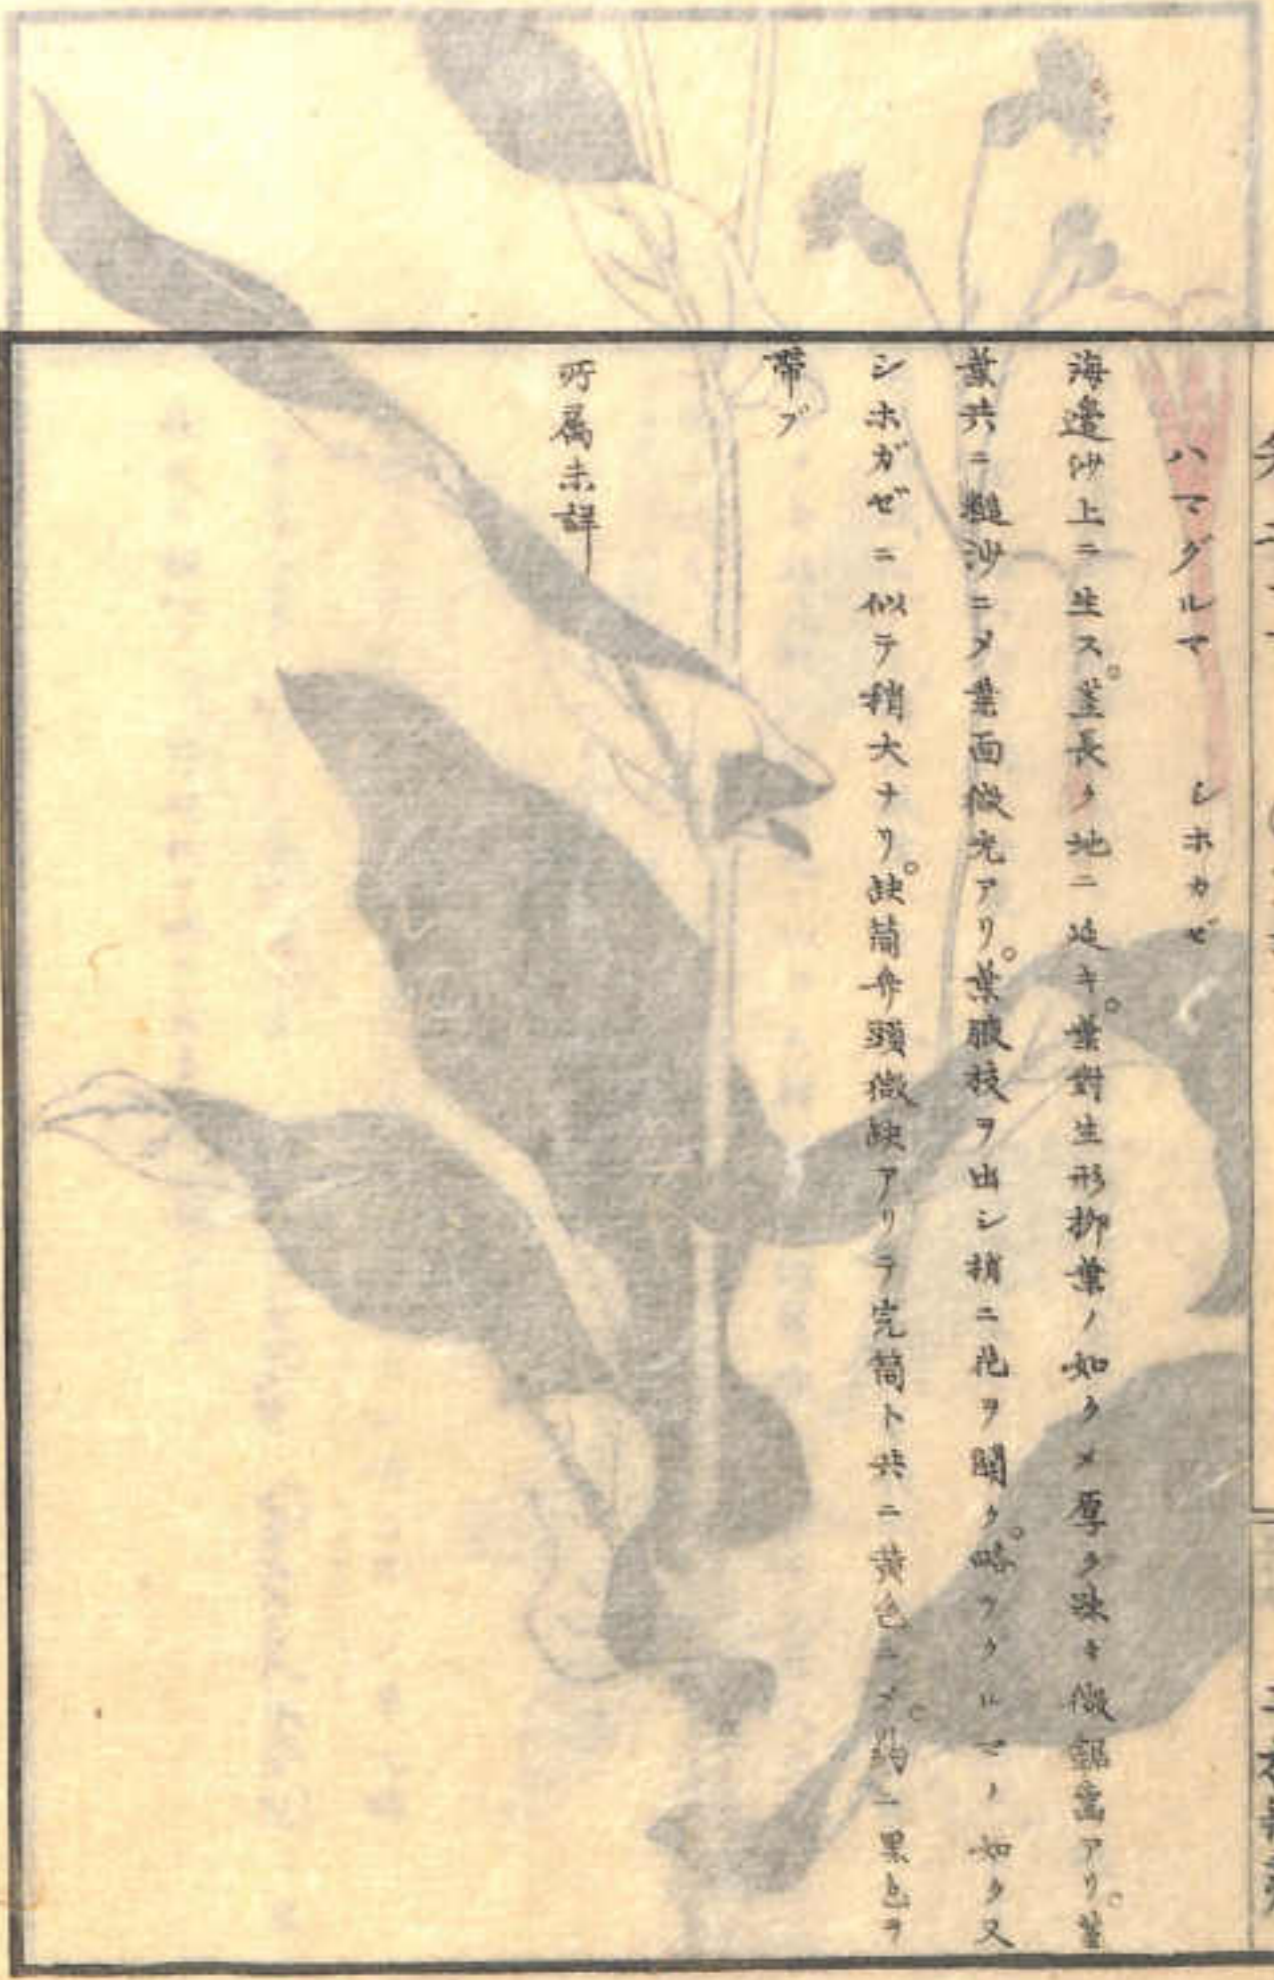 ハマグルマ　シホカゼ
海邊沙上ニ生ス。莖長ク地ニ延キ。葉對生形柳葉ノ如クメ厚ク疎キ微鋸齒アリ。莖
葉共ニ糙沙ニメ葉面微光アリ。葉腋枝ヲ出シ梢ニ花ヲ開ク。略ツクルマノ如ク又
シホガゼニ似テ稍大ナリ。缺筒弁頭微缺アリテ完筒ト共ニ黄色ニメ。葯ハ黒色ヲ
帶ブ
所属未詳